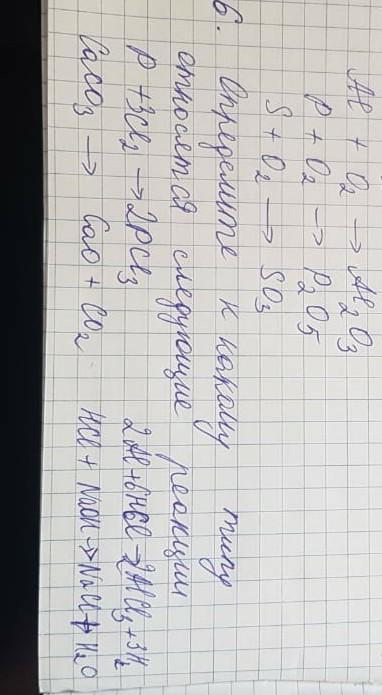 Al + O₂ → Al₂O₃
P + O₂ → P₂O₅
S + O₂ → SO₃
6. Определите к какому типу
относятся следующие реакции
P + 3Cl₂ → 2PCl₃ 2Al + 6HCl → 2AlCl₃ + 3H₂
CaCO₃ → CaO + CO₂ HCl + NaOH → NaCl + H₂O